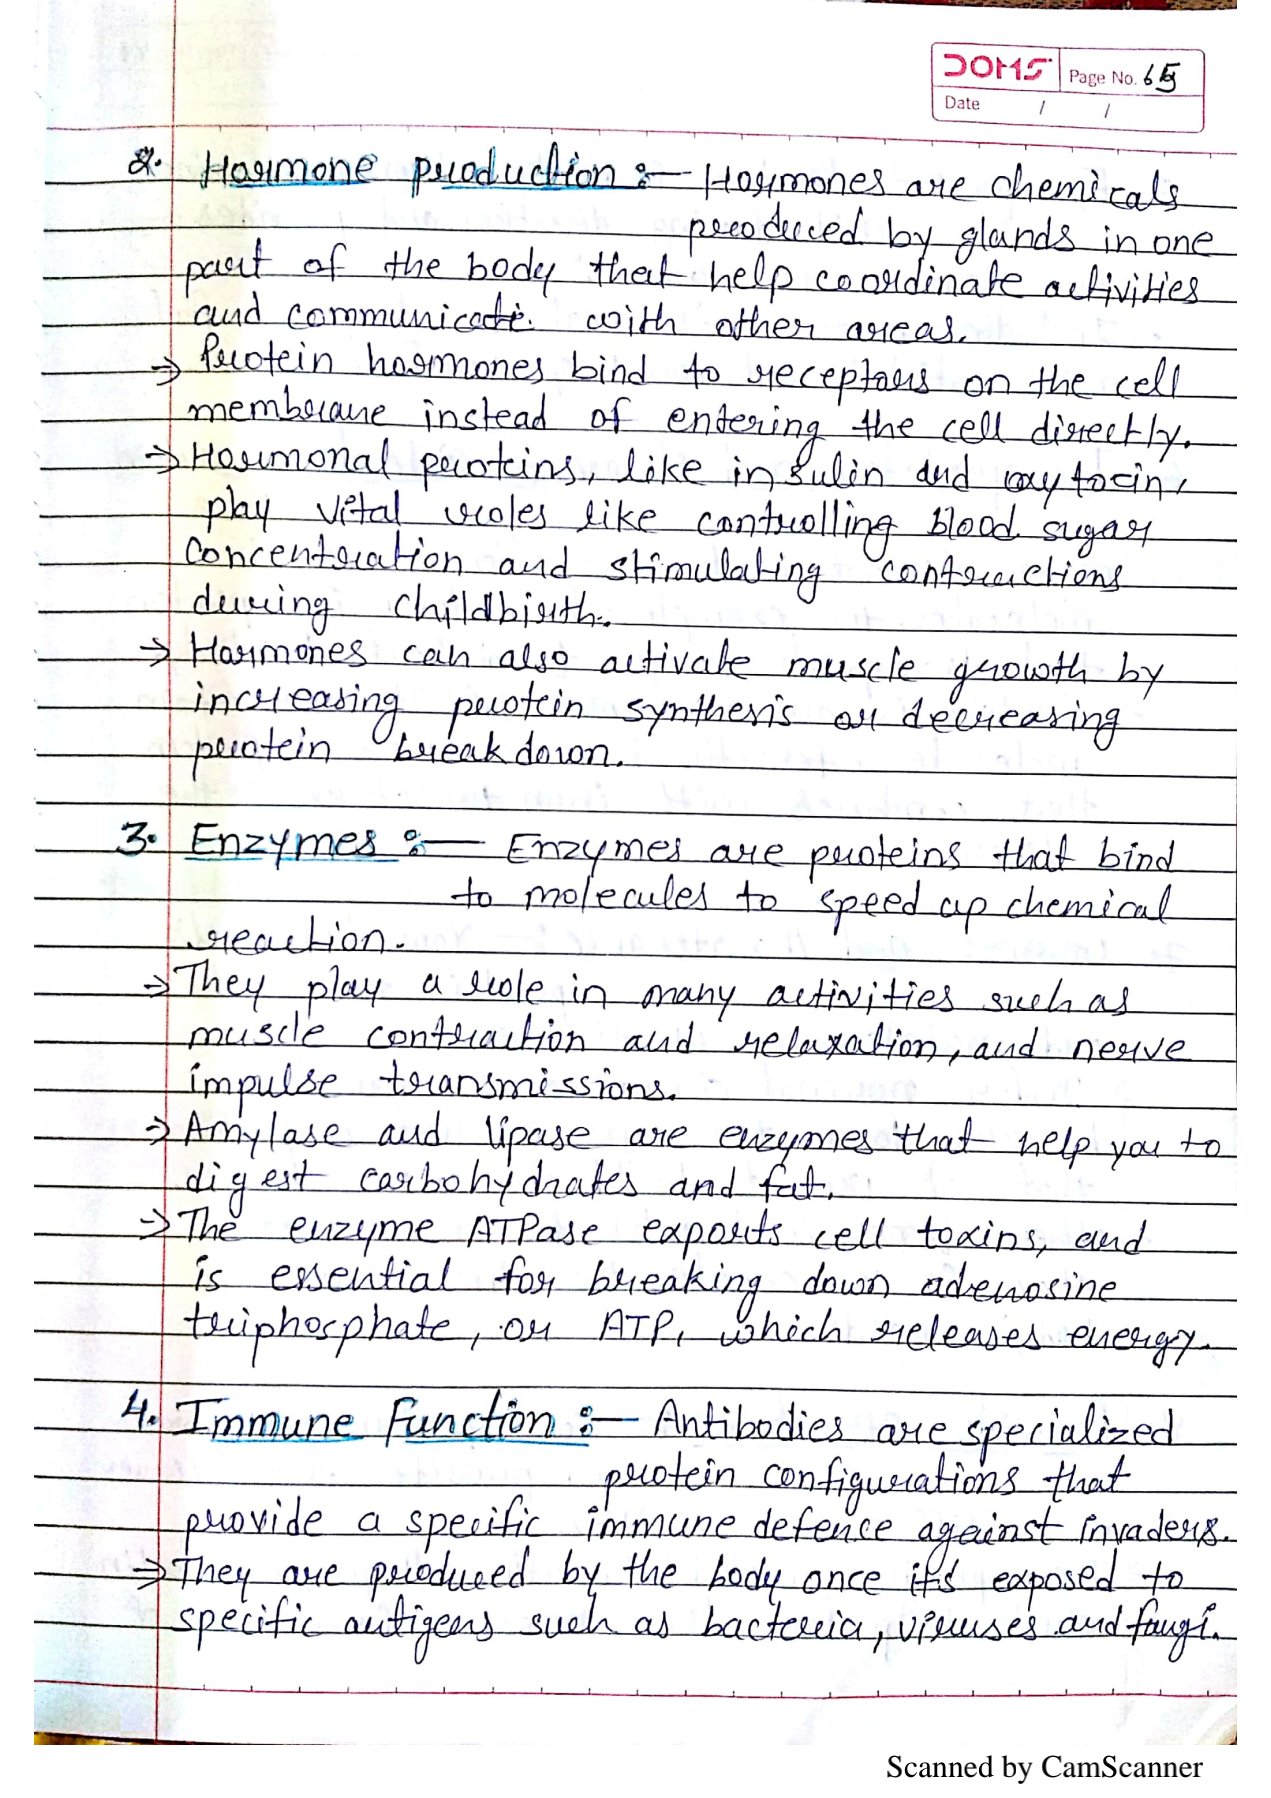 DOMS Page No. 65
Date / /
2. Hormone production :— Hormones are chemicals
produced by glands in one
part of the body that help coordinate activities
and communicate with other areas.
→ Protein hormones bind to receptors on the cell
membrane instead of entering the cell directly.
→ Hormonal proteins, like insulin and oxytocin,
play vital roles like controlling blood sugar
concentration and stimulating contractions
during childbirth.
→ Hormones can also activate muscle growth by
increasing protein synthesis or decreasing
protein breakdown.
3. Enzymes :— Enzymes are proteins that bind
to molecules to speed up chemical
reaction.
→ They play a role in many activities such as
muscle contraction and relaxation, and nerve
impulse transmissions.
→ Amylase and lipase are enzymes that help you to
digest carbohydrates and fat.
→ The enzyme ATPase exports cell toxins, and
is essential for breaking down adenosine
triphosphate, or ATP, which releases energy.
4. Immune Function :— Antibodies are specialized
protein configurations that
provide a specific immune defence against invaders.
→ They are produced by the body once it's exposed to
specific antigens such as bacteria, viruses and fungi.
Scanned by CamScanner